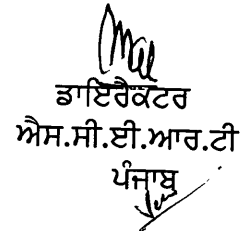 ਡਾਇਰੈਕਟਰ
ਐਸ.ਸੀ.ਈ.ਆਰ.ਟੀ
ਪੰਜਾਬ